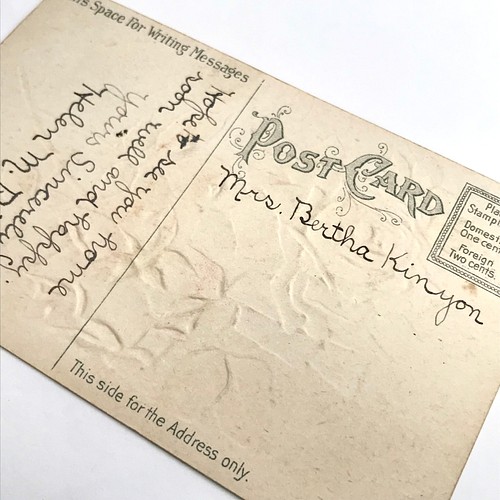 Space For Writing Messages
Hope to see you home
soon well and happy.
Yours Sincerely
Helen M.
POST CARD
Mrs. Bertha Kinyon
Stamp
Domestic
One cent
Foreign
Two cents.
This side for the Address only.